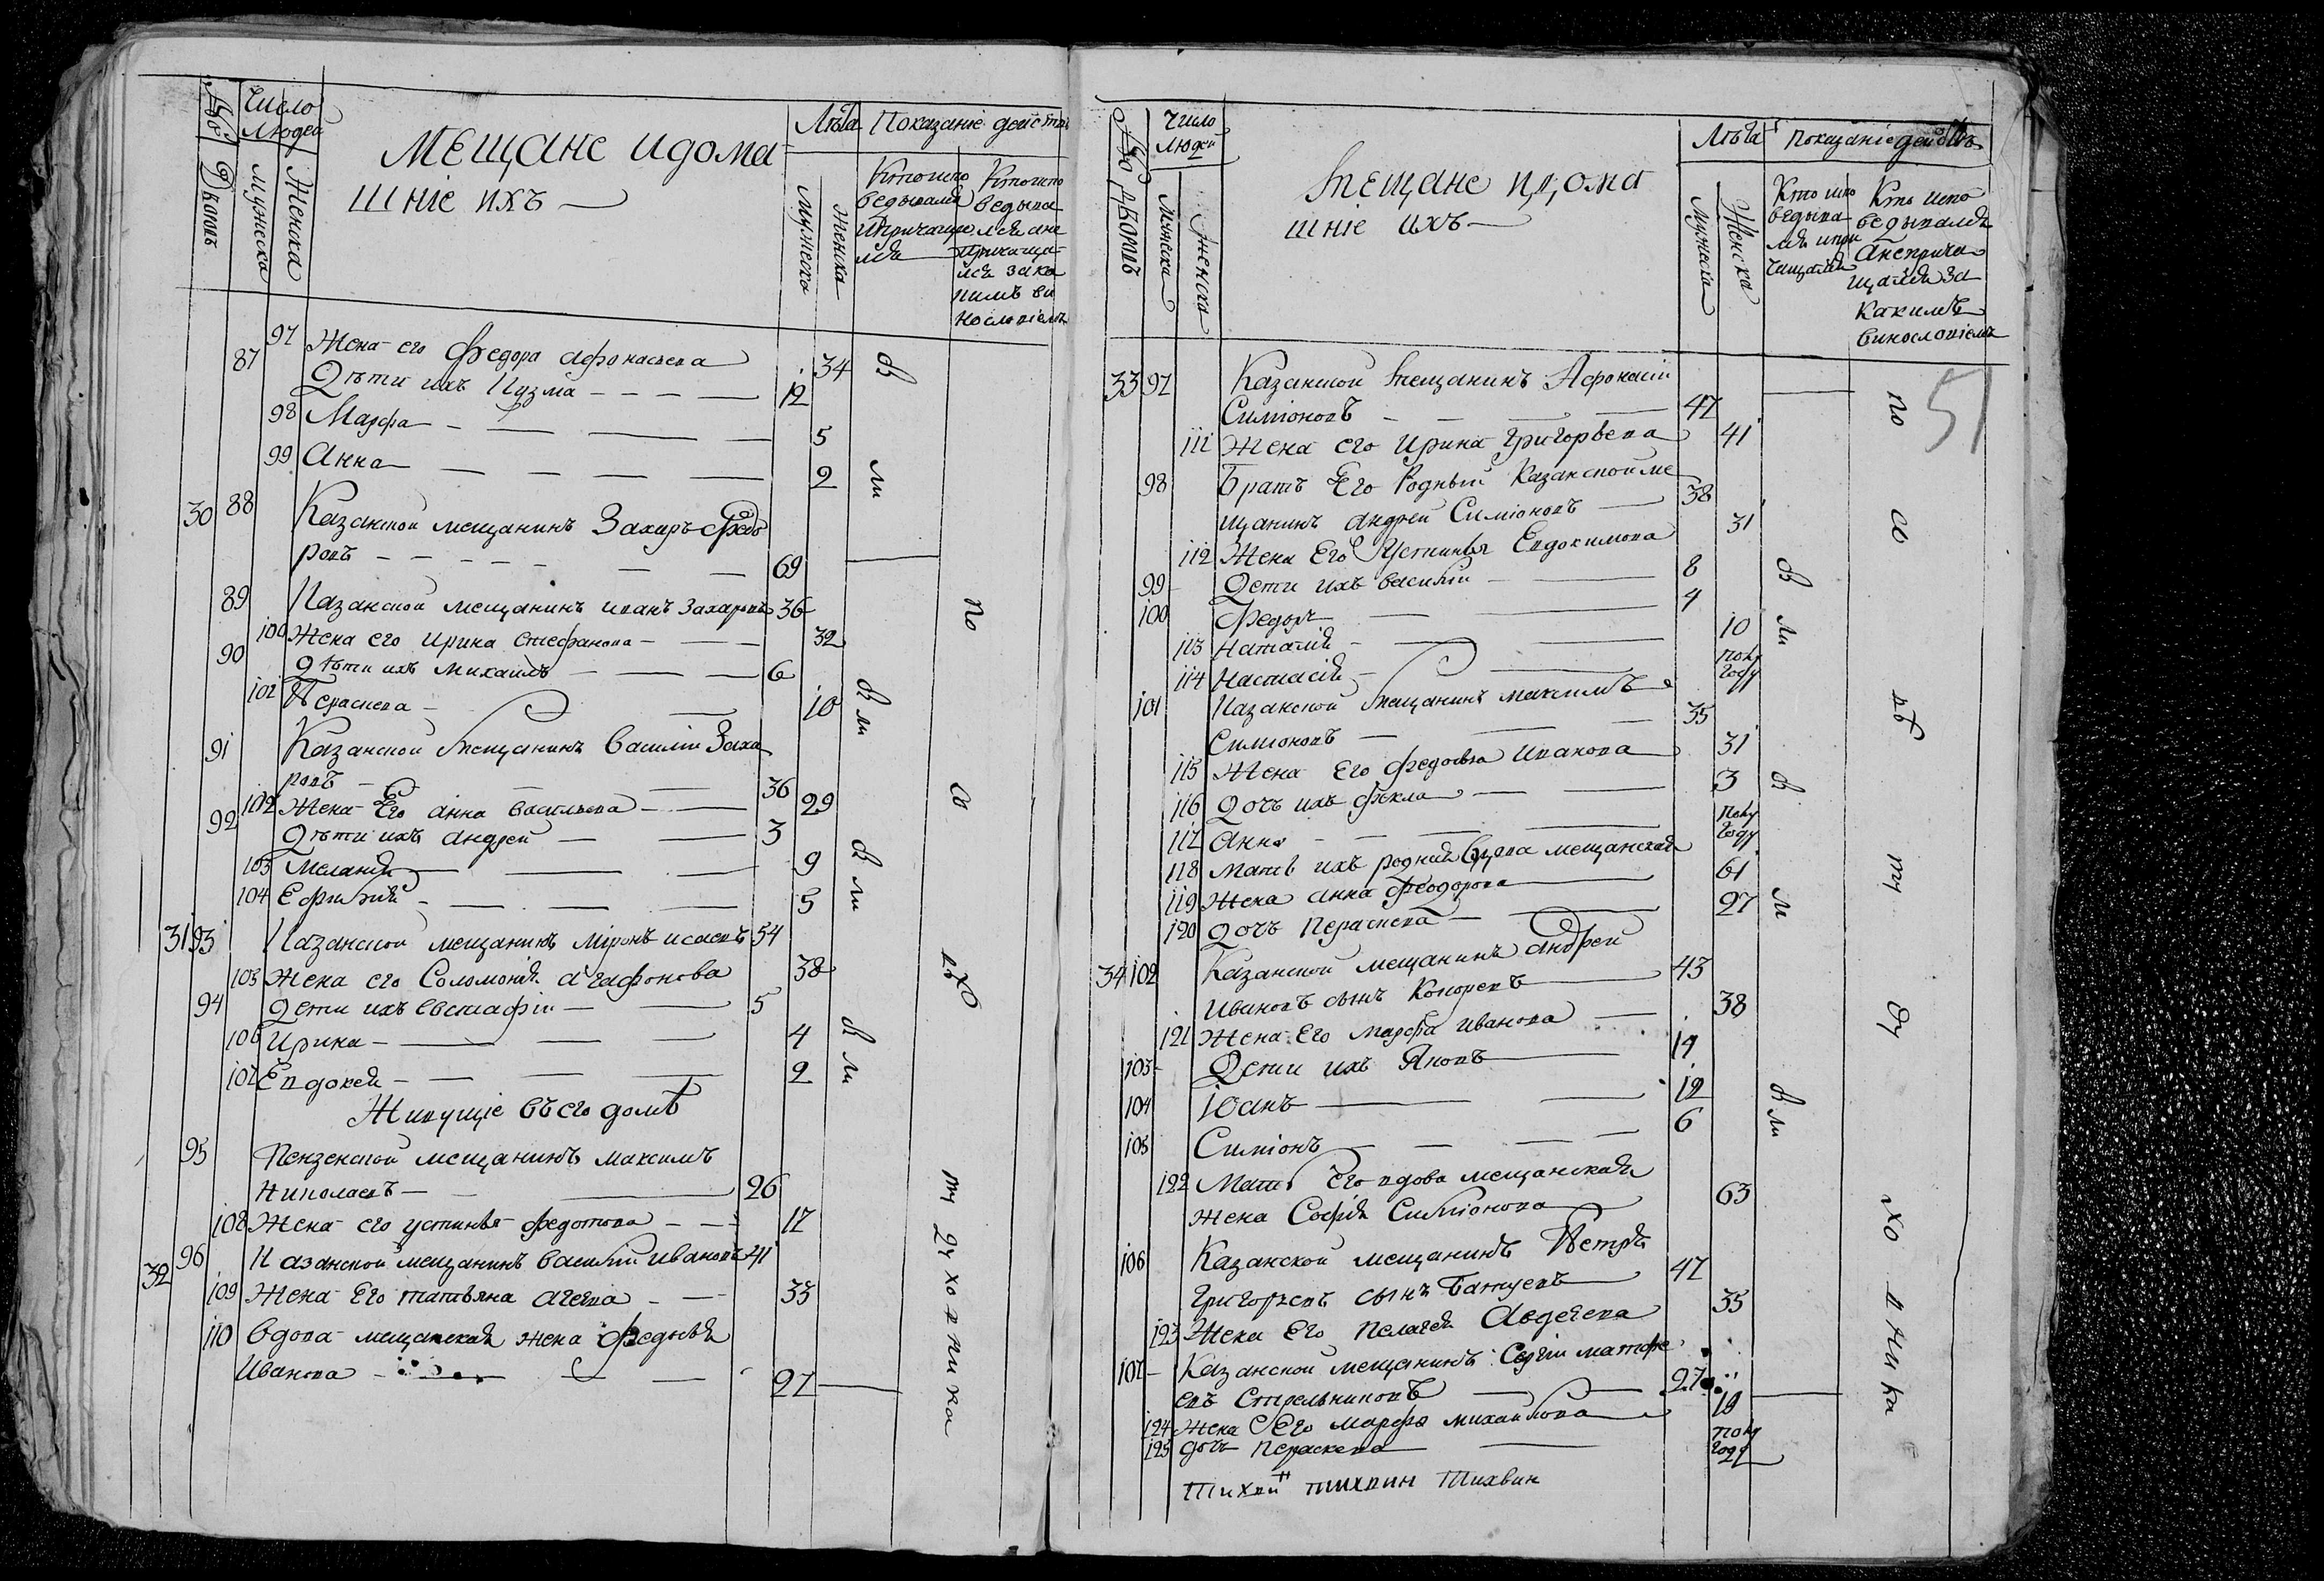 Число
Людей
Мужеска
Женска
Мещане идома
шніе ихъ
Лѣта
Показаніе действ
Мужеска
Женска
Кто испо
ведывался
ипричащал
ся
Кто испо
ведыва
лся ане
причаща
лся зака
кимъ ви
нословіемъ
97 Жена его Федора Афонасьева 34
87 Дѣти ихъ Кузма 12
98 Марфа 5
99 Анна 2
30 88 Казанской мещанинъ Захаръ Федо
ровъ 69
89 Казанской мещанинъ иванъ Захаровъ 36
100 Жена его Ирина Стефанова 32
90 Дѣти ихъ Михаилъ 6
101 Пераскева 10
91 Казанской мещанинъ Василіи Заха
ровъ 36
102 Жена Его анна васильева 29
92 Дѣти ихъ андрей 3
103 Меланія 9
104 5
31 93 Казанской мещанинъ міронъ исаевъ 54
105 Жена его Соломонія агафонова 38
94 Дети ихъ евстафіи 5
106 Ирина 4
107 Евдокея 2
Живущіе въ его домѣ
95 Пензенской мещанинъ максимъ
николаевъ 26
108 Жена его устинья федотова 17
32 96 Казанской мещанинъ василіи ивановъ 41
109 Жена Его татьяна агеева 33
110 вдова мещанская жена федосья
Иванова 27
вли
по со дхо
ту ду хо в ни ка
Число
людей
Мужеска
женска
Мещане идома
шніе ихъ
Лѣта
Показаніе действъ
Мужеска
Женска
Кто испо
ведыва
лся ипри
чащался
Кто испо
ведывался
Анеприча
щался за
какимъ
винословіемъ
51
33 97 Казанской мещанинъ Афонасіи
Симіоновъ 47
111 Жена его Ирина Григорьева 41
98 Братъ Его Родный Казанской ме
щанинъ андрей Симіоновъ 38
112 Жена Его Устинья Евдокимова 31
99 Дети ихъ василіи 8
100 Федоръ 4
113 Наталія 10
114 Настасія полу
году
101 Казанской мещанинъ максимъ
Симіоновъ 35
115 Жена Его федосья Иванова 31
116 Дочь ихъ фекла 3
117 Анна полу
году
118 Мать ихъ родная вдова мещанская
119 Жена анна феодорова 61
120 Дочь Пераскева 27
34 102 Казанской мещанинъ андрей
Ивановъ сынъ 43
121 Жена Его марфа иванова 38
103 Дети ихъ Яковъ 14
104 Іоанъ 12
105 Симіонъ 6
122 Мать Его вдова мещанская
жена Софія Симіонова 63
106 Казанской мещанинъ Петръ
Григорьевъ сынъ 47
123 Жена Его пелагея Авдеева 35
107 Казанской мещанинъ Сергіи матфе
евъ Стрельниковъ 27
124 Жена Его марфа михаилова 19
125 дочь Пераскева полу
году
вли
по со
ту ду хо в ни ка
Тихвин